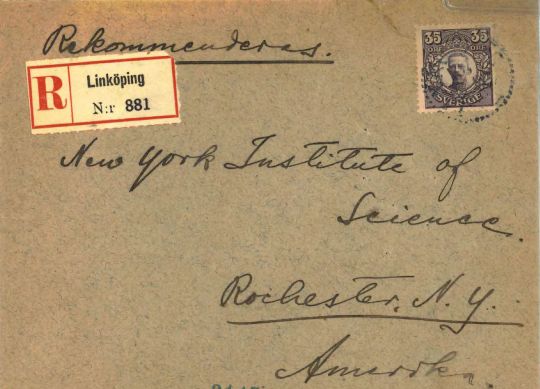 Rekommenderas.
R
Linköping
N:r 881
35 35
ÖRE ÖRE
SVERIGE
New York Institute of
Science.
Rochester. N. Y.
Amerika.